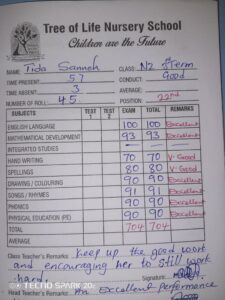 Tree of Life Nursery School
Children are the Future
NAME: Tida Sanneh CLASS: N2 TERM
TIME PRESENT: 57 CONDUCT: Good
TIME ABSENT: 3 AVERAGE:
NUMBER OF ROLL: 45 POSITION: 22nd
SUBJECTS TEST 1 TEST 2 EXAM TOTAL REMARKS
ENGLISH LANGUAGE 100 100 Excellent
MATHEMATICAL DEVELOPMENT 93 93 Excellent
INTEGRATED STUDIES
HAND WRITING 70 70 V. Good
SPELLINGS 80 80 V. Good
DRAWING / COLOURING 90 90 Excellent
SONGS / RHYMES 91 91 Excellent
PHONICS 90 90 Excellent
PHYSICAL EDUCATION (PE) 90 90 Excellent
TOTAL 704 704
AVERAGE
Class Teacher's Remarks: Keep up the good work
and encouraging her to still work
hard. Signature:
Head Teacher's Remarks: An Excellent performance
TECNO SPARK 20